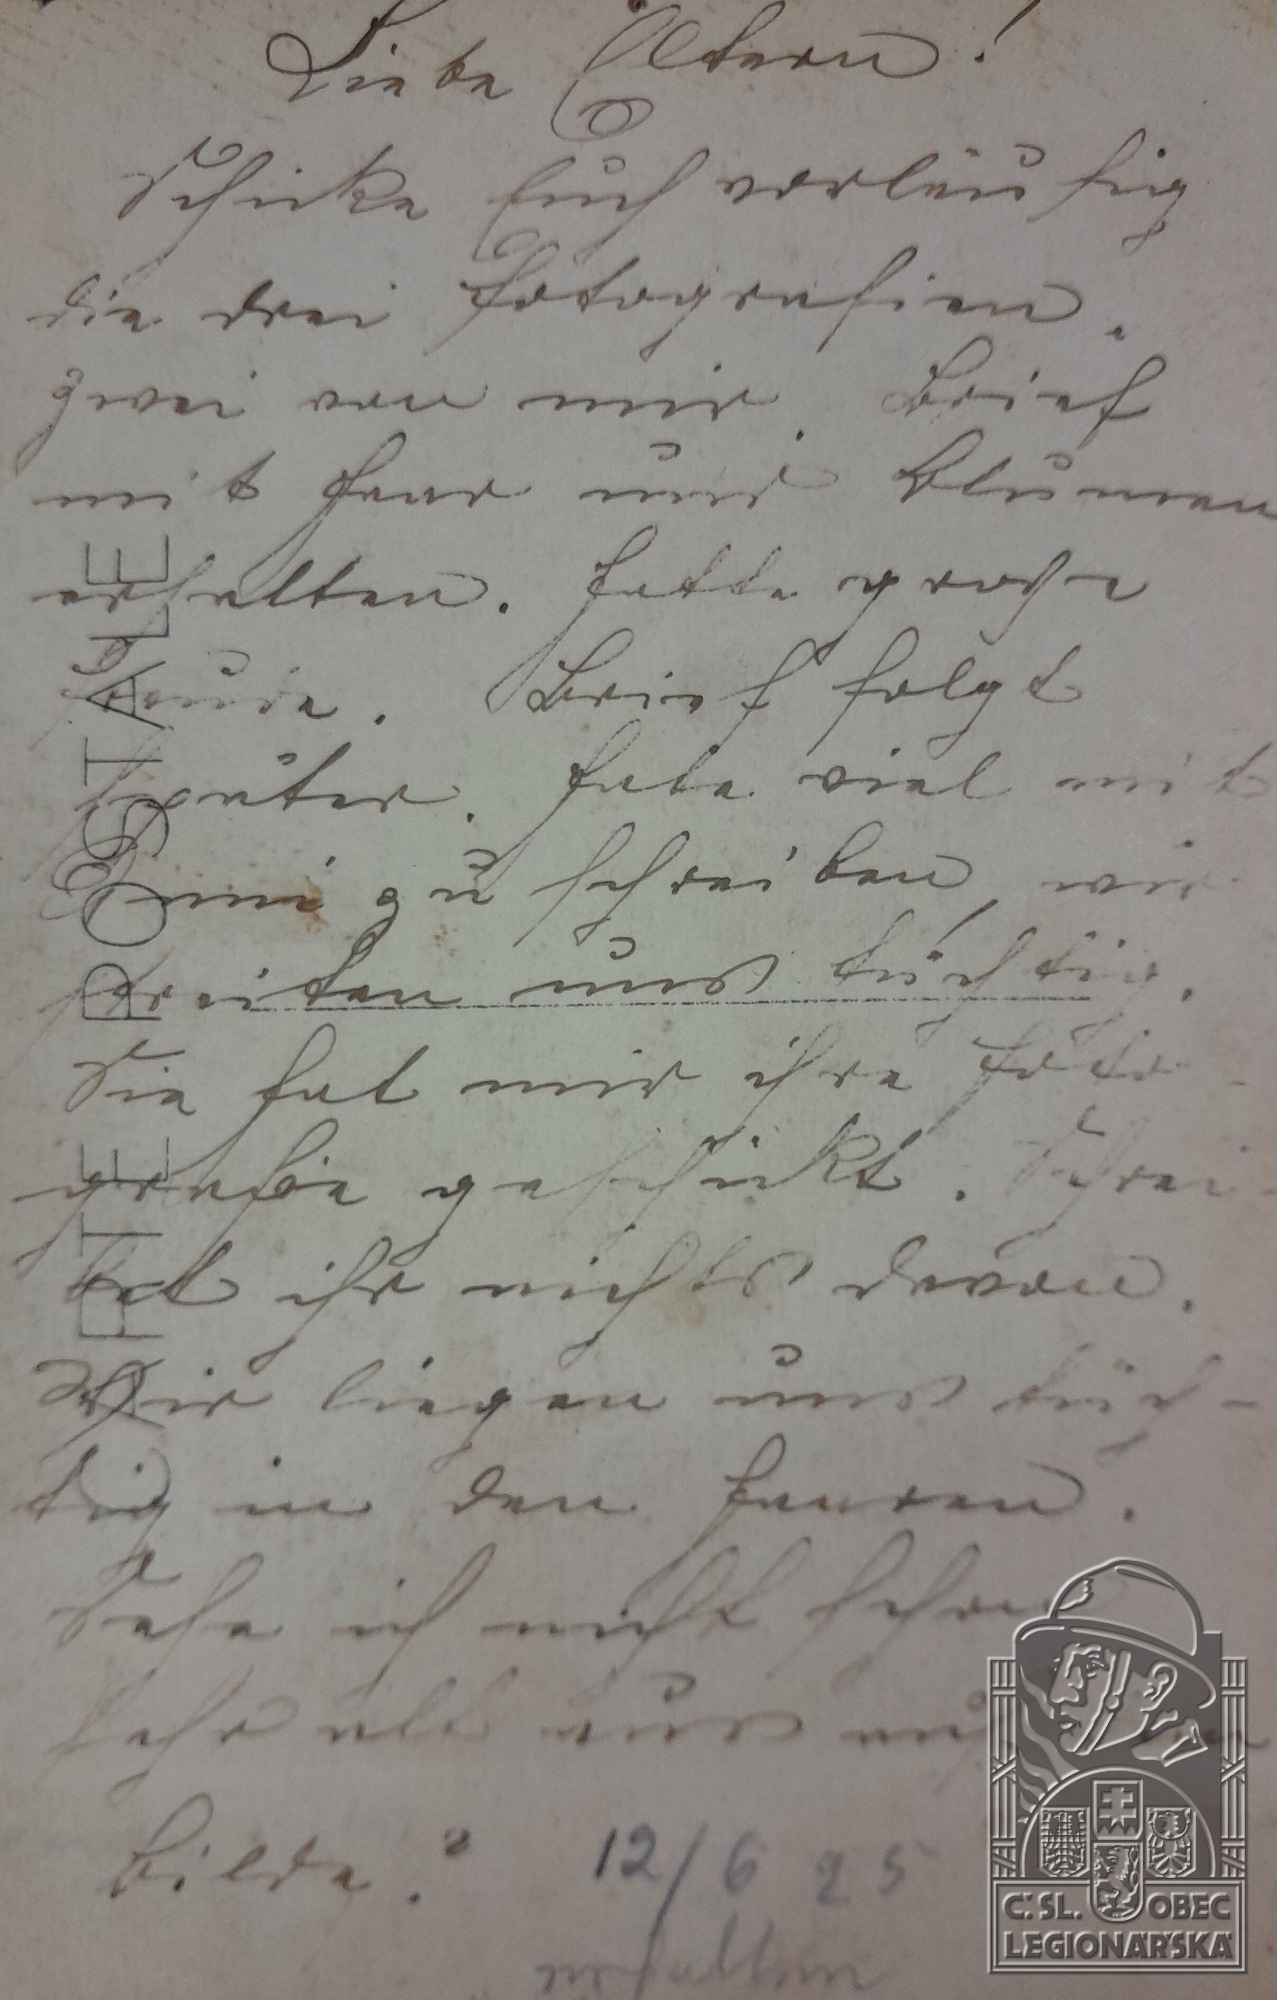 Liebe Eltern!
Schicke Euch vorläufig
die drei Fotografien.
Zwei von mir. Brief
mit Haar und Blumen
erhalten. Hatte große
Freude. Brief folgt
später. Habe viel mit
Emmi zu schreiben, wir
streiten uns tüchtig.
Sie hat mir ihre Foto-
grafie geschickt. Schrei-
bet ihr nichts davon.
Wir liegen uns tüch-
tig in den Haaren.
Sehe ich nicht schon
sehr alt aus auf dem
Bilde?
12/6 25
erhalten
CARTE POSTALE
Č.SL. OBEC
LEGIONÁŘSKÁ